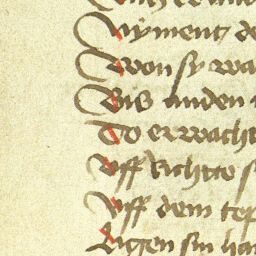 Nyment de
Won sy wa
Bis an den
Do erwacht
Uff richtte s
Uff dem tep
Ligen sin ha